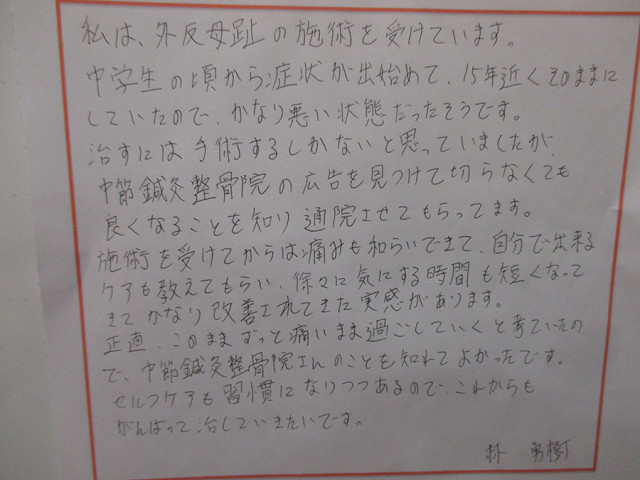 私は、外反母趾の施術を受けています。
中学生の頃から症状が出始めて、15年近くそのままに
していたので、かなり悪い状態だったそうです。
治すには手術するしかないと思っていましたが、
中節鍼灸整骨院の広告を見つけて切らなくても
良くなることを知り通院させてもらってます。
施術を受けてからは痛みも和らいできて、自分で出来る
ケアも教えてもらい、徐々に気にする時間も短くなって
きてかなり改善されてきた実感があります。
正直、このままずっと痛いまま過ごしていくと考ていたの
で、中節鍼灸整骨院さんのことを知れてよかったです。
セルフケアも習慣になりつつあるので、これからも
がんばって治していきたいです。
林 勇樹